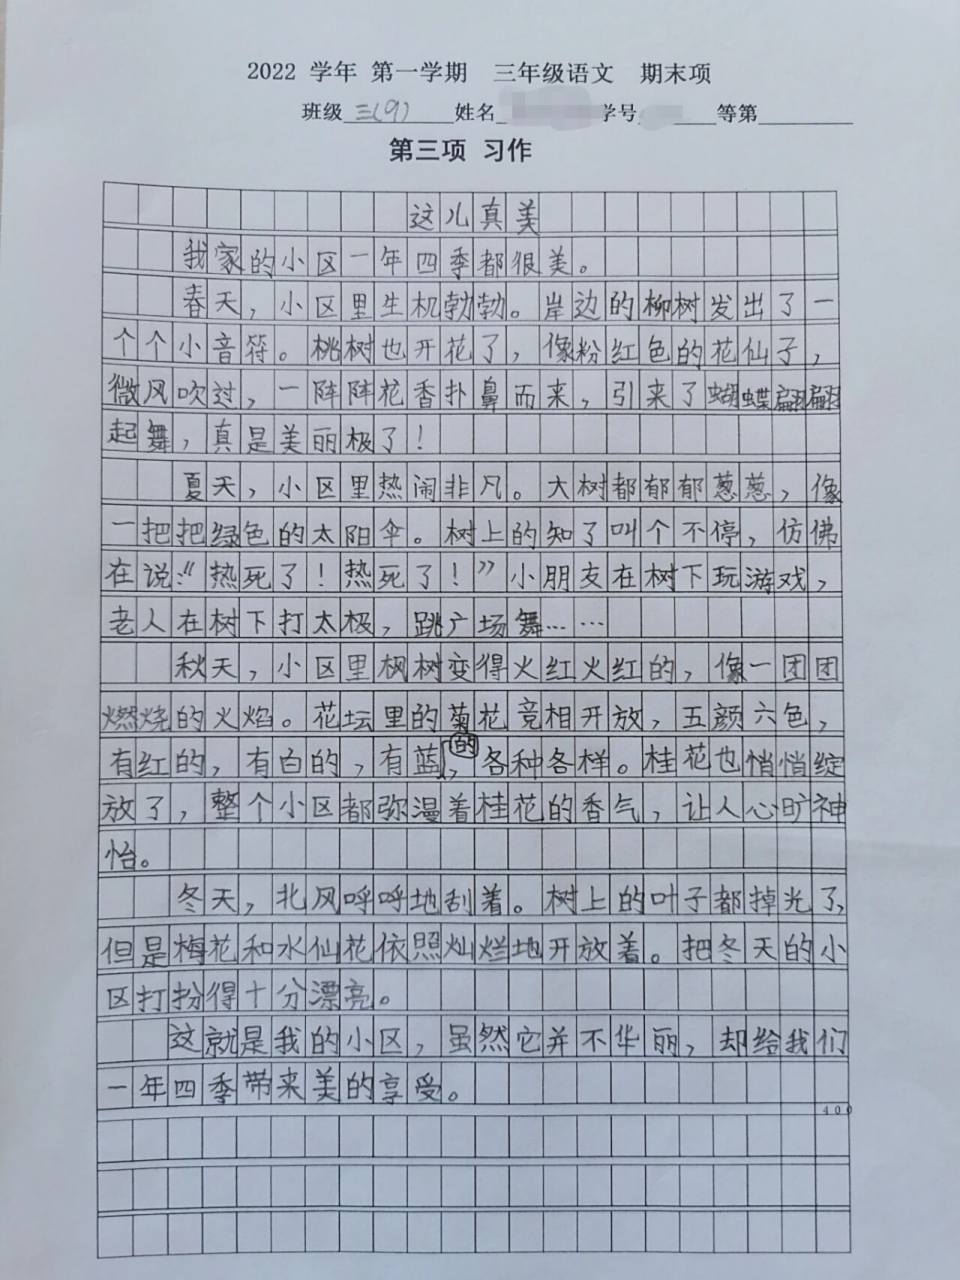 2022 学年 第一学期 三年级语文 期末项
班级 三(9) 姓名 学号 等第
第三项 习作
这儿真美
我家的小区一年四季都很美。
春天，小区里生机勃勃。岸边的柳树发出了一
个个小音符。桃树也开花了，像粉红色的花仙子，
微风吹过，一阵阵花香扑鼻而来，引来了蝴蝶翩翩
起舞，真是美丽极了！
夏天，小区里热闹非凡。大树都郁郁葱葱，像
一把把绿色的太阳伞。树上的知了叫个不停，仿佛
在说：“热死了！热死了！”小朋友在树下玩游戏，
老人在树下打太极，跳广场舞……
秋天，小区里枫树变得火红火红的，像一团团
燃烧的火焰。花坛里的菊花竞相开放，五颜六色，
有红的，有白的，有蓝的，各种各样。桂花也悄悄绽
放了，整个小区都弥漫着桂花的香气，让人心旷神
怡。
冬天，北风呼呼地刮着。树上的叶子都掉光了，
但是梅花和水仙花依照灿烂地开放着。把冬天的小
区打扮得十分漂亮。
这就是我的小区，虽然它并不华丽，却给我们
一年四季带来美的享受。
400